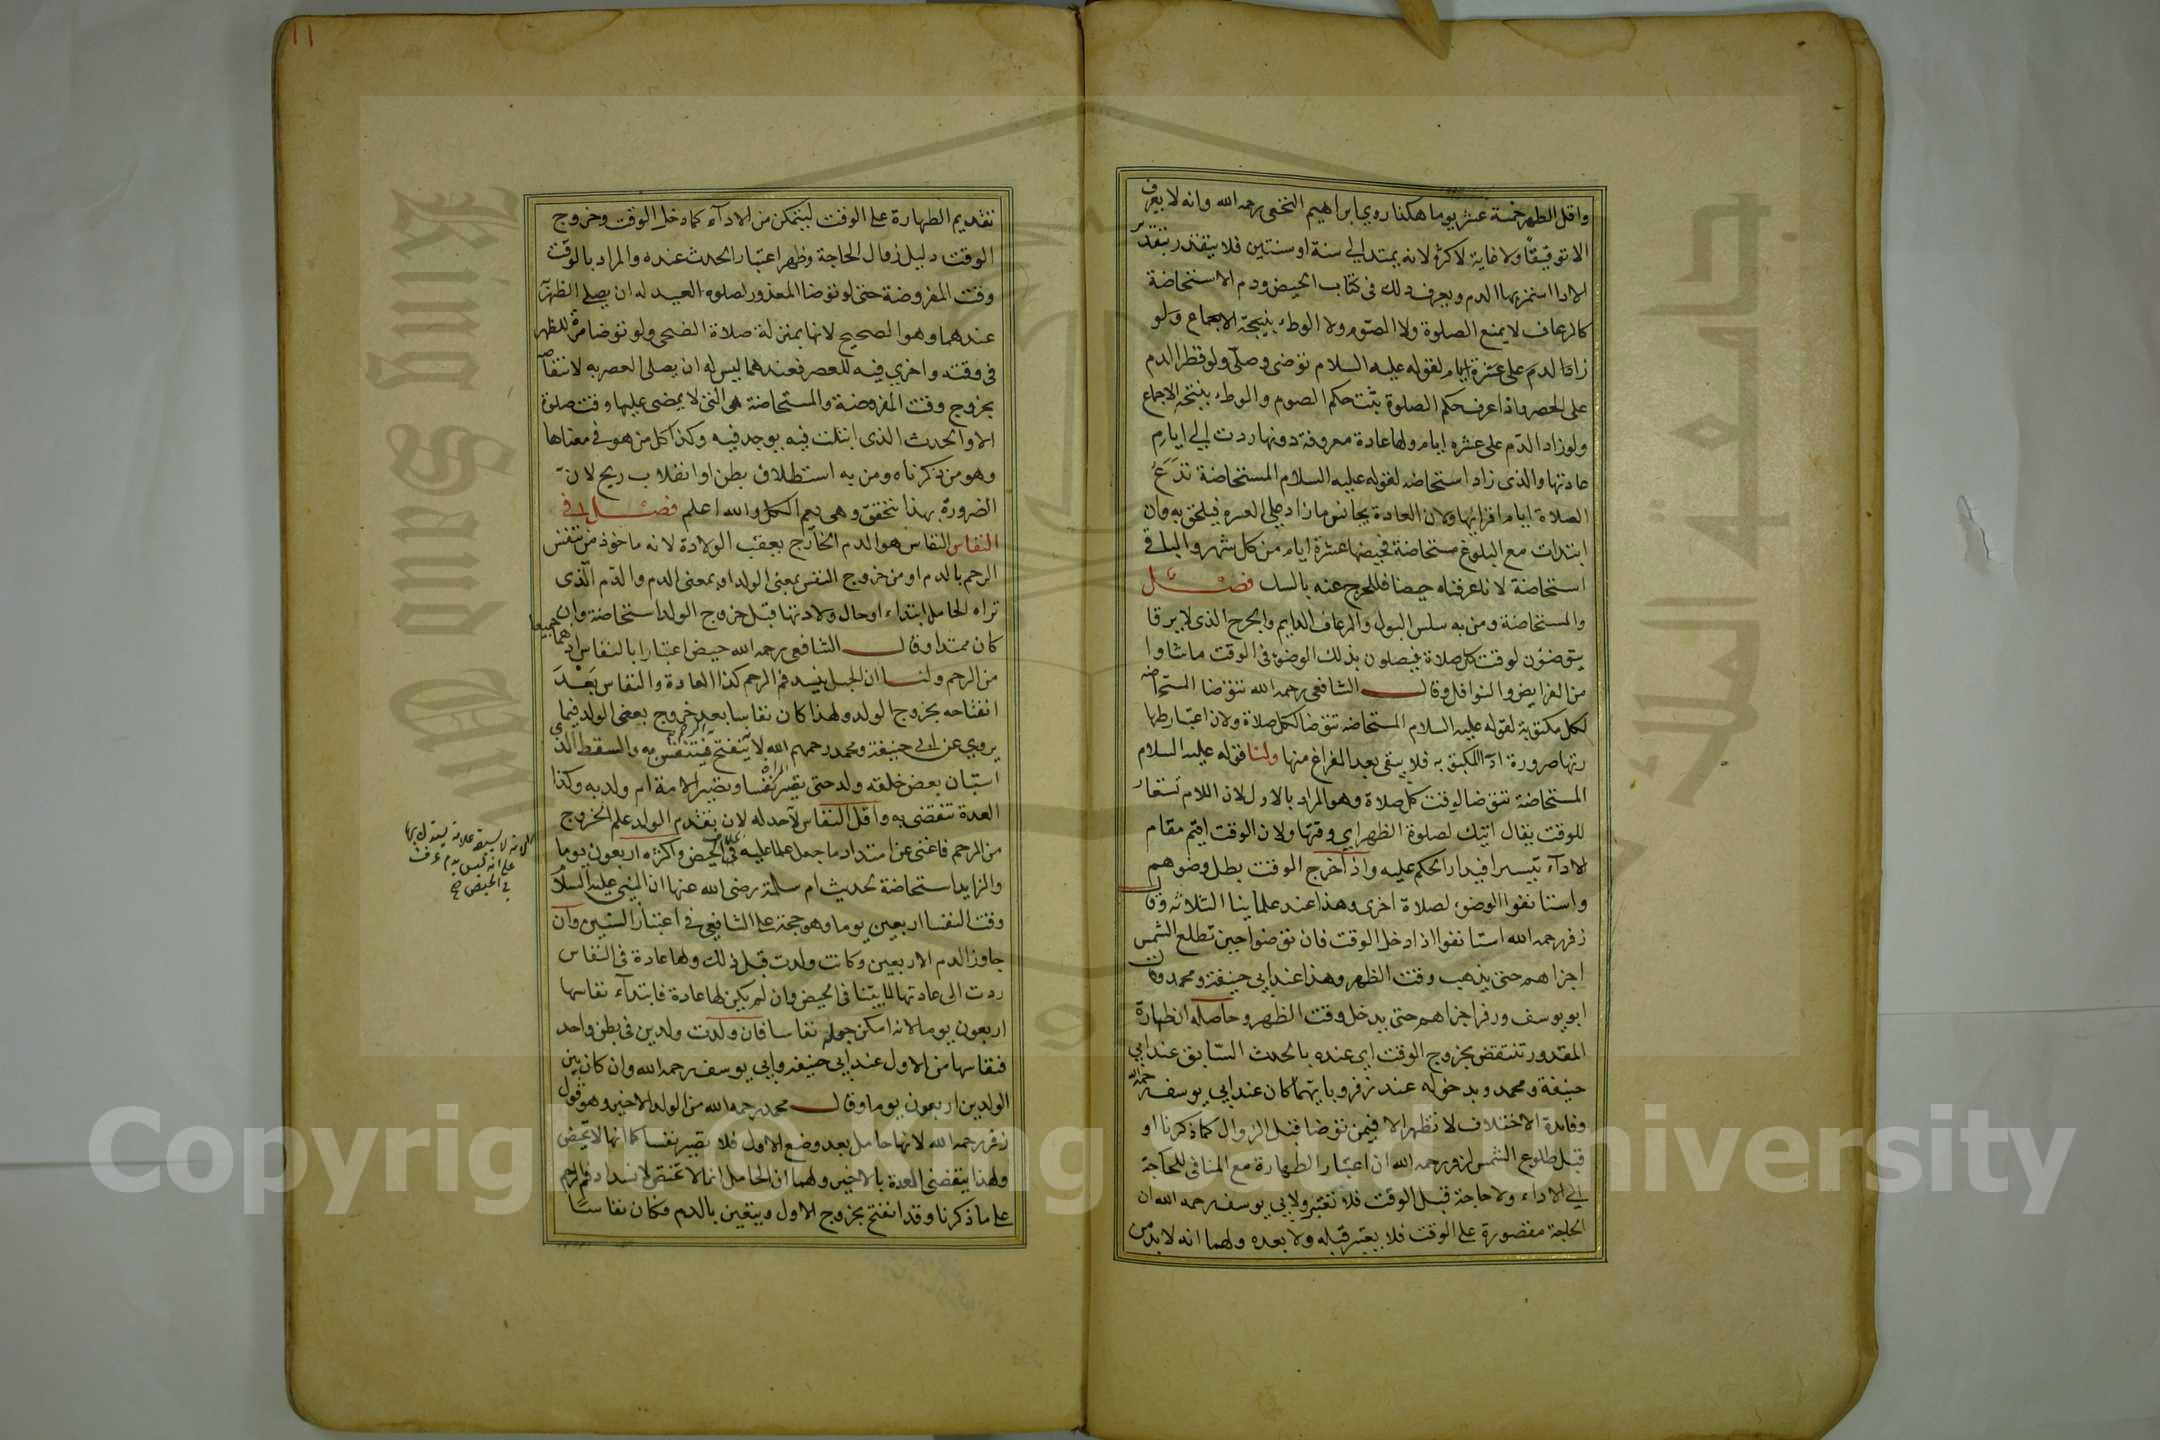 واقل الطهر خمسة عشر يوما هكذا روي ابراهيم النخعي رحمه الله وانه لا يعرف
الا توقيفا ولا غاية لاكثره لانه يمتد الي سنة او سنتين فلا يتقدر بتقدير
الا اذا استمر بها الدم ويعرف ذلك فى كتاب الحيض ودم الاستحاضة
كالرعاف لا يمنع الصلوة ولا الصوم ولا الوطء بنتيجة الاجماع ولو
زاد الدم على عشرة ايام لقوله عليه السلام توضى وصلى ولو قطر الدم
على الحصر واذا عرف حكم الصلوة يثبت حكم الصوم والوطء بنتيجة الاجماع
ولو زاد الدم على عشره ايام ولها عادة معروفة دونها ردت الي ايام
عادتها والذى زاد استحاضه لقوله عليه السلام المستحاضة تدع
الصلاة ايام اقرايها ولان العادة يجانس ما زاد على العشره فيلحق به وان
ابتدات مع البلوغ مستحاضة فحيضها عشرة ايام من كل شهر والباقي
استحاضة لانا عرفناه حيضا فلا يخرج عنه بالشك فصل
والمستحاضة ومن به سلس البول والرعاف الدايم والجرح الذى لا يرقا
يتوضئون لوقت كل صلاة فيصلون بذلك الوضوء فى الوقت ما شاوا
من الفرايض والنوافل وقال الشافعى رحمه الله تتوضا المستحاضه
لكل مكتوبة لقوله عليه السلام المستحاضه تتوضا لكل صلاة ولان اعتبار طها
رتها ضرورة اداء المكتوبة فلا يبقى بعد الفراغ منها ولنا قوله عليه السلام
المستحاضة تتوضا لوقت كل صلاة وهو المراد بالاول لان اللام تستعار
للوقت يقال اتيتك لصلوة الظهر اي وقتها ولان الوقت اقيم مقام
الاداء تيسيرا فيدار الحكم عليه واذا خرج الوقت بطل وضوهم
واستانفوا الوضوء لصلاة اخرى وهذا عند علماينا الثلاثه وقال
زفر رحمه الله استانفوا اذا دخل الوقت فان توضوا حين تطلع الشمس
اجزاهم حتى يذهب وقت الظهر وهذا عند ابي حنيفة ومحمد وقال
ابو يوسف وزفر اجزاهم حتى يدخل وقت الظهر وحاصله ان طهارة
المعذور تنتقض بخروج الوقت اي عنده بالحدث السابق عند ابي
حنيفة ومحمد وبدخوله عند زفر وبايهما كان عند ابي يوسف رحمه الله
وفايدة الاختلاف لا تظهر الا فيمن توضا قبل الزوال كما ذكرنا او
قبل طلوع الشمس لزفر رحمه الله ان اعتبار الطهارة مع المنافى للحاجة
الي الاداء ولا حاجة قبل الوقت فلا تعتبر ولابي يوسف رحمه الله ان
الحاجة مقصورة على الوقت فلا يعتبر قبله ولا بعده ولهما انه لا بد من
تقديم الطهارة على الوقت ليتمكن من الاداء كما دخل الوقت وخروج
الوقت دليل زوال الحاجة وظهر اعتبار الحدث عنده والمراد بالوقت
وقت المفروضة حتى لو توضا المعذور لصلوة العيد له ان يصلي الظهر
عندهما وهو الصحيح لانها بمنزلة صلاة الضحى ولو توضا مرة للظهر
فى وقته واخري فيه للعصر فعندهما ليس له ان يصلى العصر به لانتقاضه
بخروج وقت المفروضة والمستحاضة هى التى لا يمضى عليها وقت صلوة
الا والحدث الذى ابتليت فيه يوجد فيه وكذا كل من هو في معناها
وهو من ذكرناه ومن به استطلاق بطن او انفلات ريح لان
الضرورة بهذا تتحقق وهى يعم الكل والله اعلم فصل في
النفاس النفاس هو الدم الخارج بعقب الولادة لانه ماخوذ من تنفس
الرحم بالدم او من خروج النفس بمعنى الولد او بمعنى الدم والدم الذى
تراه الحامل ابتداء او حال ولادتها قبل خروج الولد استحاضة وان
كان ممتدا وقال الشافعى رحمه الله حيض اعتبارا بالنفاس اذ هما جميعا
من الرحم ولنا ان الحبل ينسد فم الرحم كذا العادة والنفاس بعد
انفتاحه بخروج الولد ولهذا كان نفاسا بعد خروج بعض الولد فيما
يروي عن ابي حنيفة ومحمد رحمهم الله لا ينفتح فيتنفس به والسقط الذي
استبان بعض خلقه ولد حتى يصير المراة نفسا وتصير الامة ام ولد به وكذا
العدة تنقضى به واقل النفاس لا حد له لان تقدم الولد علم الخروج
من الرحم فاغنى عن امتداد ما جعل علما عليه في الحيض واكثره اربعون يوما
والزايد استحاضة لحديث ام سلمة رضى الله عنها ان النبي عليه السلام
وقت النفسا اربعين يوما وهو حجة على الشافعي في اعتبار الستين وان
جاوز الدم الاربعين وكانت ولدت قبل ذلك ولها عادة فى النفاس
ردت الى عادتها لما بينا فى الحيض وان لم يكن لها عادة فابتداء نفاسها
اربعون يوما لانه امكن جعله نفاسا فان ولدت ولدين فى بطن واحد
فنفاسها من الاول عند ابي حنيفة وابي يوسف رحمه الله وان كان بين
الولدين اربعون يوما وقال محمد رحمه الله من الولد الاخير وهو قول
زفر رحمه الله لانها حامل بعد وضع الاول فلا تصير نفسا كما انها لا تحيض
ولهذا ينقضى العدة بالاخير ولهما ان الحامل انما لا تحيض لانسداد فم الرحم
على ما ذكرنا وقد انفتح بخروج الاول ويتعين بالدم فكان نفاسا
علي انه ليس بدم عرف
في الحيض صح
١١
King Saud University
جامعة الملك سعود
Copyright © King Saud University